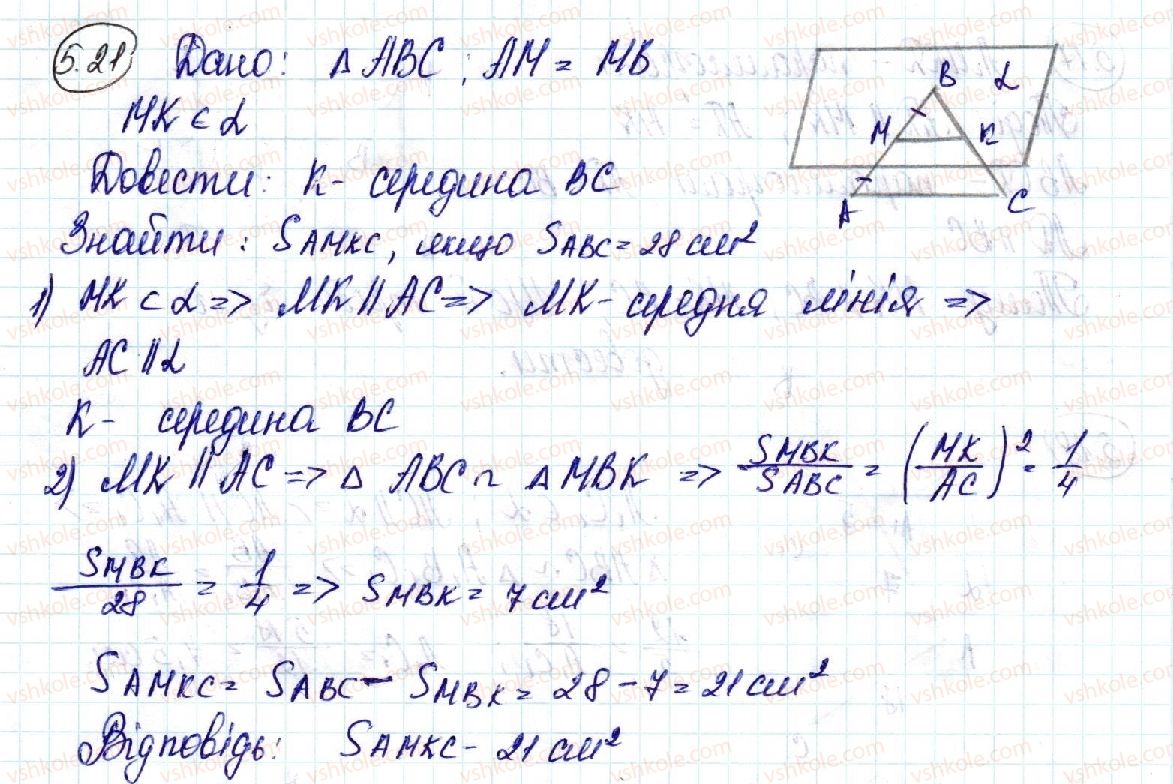 5.21 Дано: △ ABC; AM = MB
MK ⊂ α
Довести: K - середина BC
Знайти: S AMKC, якщо S ABC = 28 см²
1) MK ⊂ α => MK || AC => MK - середня лінія =>
AC || α
K - середина BC
2) MK || AC => △ ABC ~ △ MBK => S MBK / S ABC = (MK / AC)² = 1/4
S MBK / 28 = 1/4 => S MBK = 7 см²
S AMKC = S ABC - S MBK = 28 - 7 = 21 см²
Відповідь: S AMKC - 21 см²
B α
M K
A C
vshkole.com